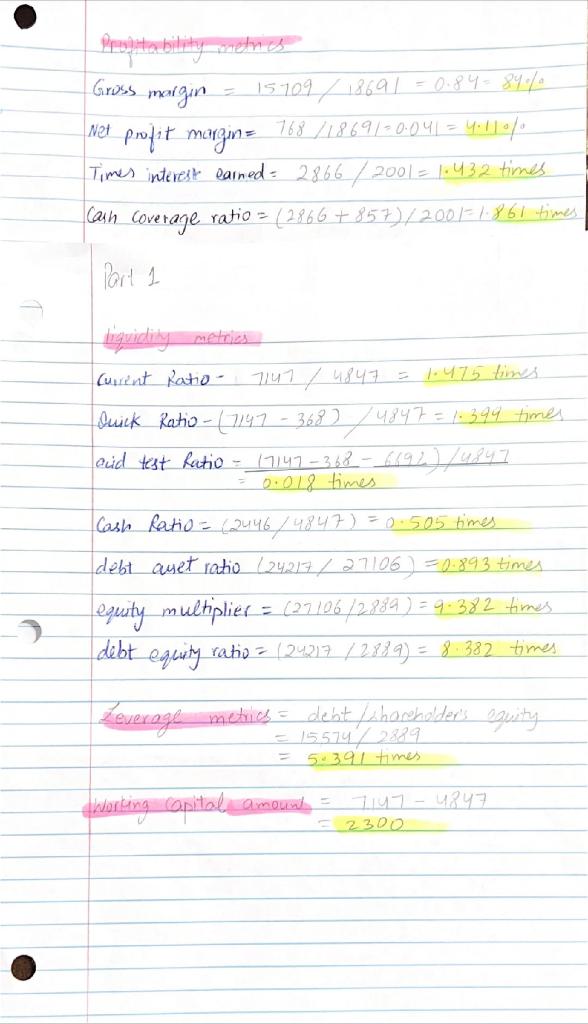 Profitability metrics
Gross margin = 15709 / 18691 = 0.84 = 84%
Net profit margin = 768 / 18691 = 0.041 = 4.11%
Times interest earned = 2866 / 2001 = 1.432 times
Cash coverage ratio = (2866 + 857) / 2001 = 1.861 times
Part 1
liquidity metrics
Current Ratio - 7147 / 4847 = 1.475 times
Quick Ratio - (7147 - 368) / 4847 = 1.399 times
acid test Ratio = (7147 - 368 - 6692) / 4847
= 0.018 times
Cash Ratio = (2446 / 4847) = 0.505 times
debt asset ratio (24217 / 27106) = 0.893 times
equity multiplier = (27106 / 2889) = 9.382 times
debt equity ratio = (24217 / 2889) = 8.382 times
Leverage metrics = debt / shareholder's equity
= 15574 / 2889
= 5.391 times
Working capital amount = 7147 - 4847
= 2300